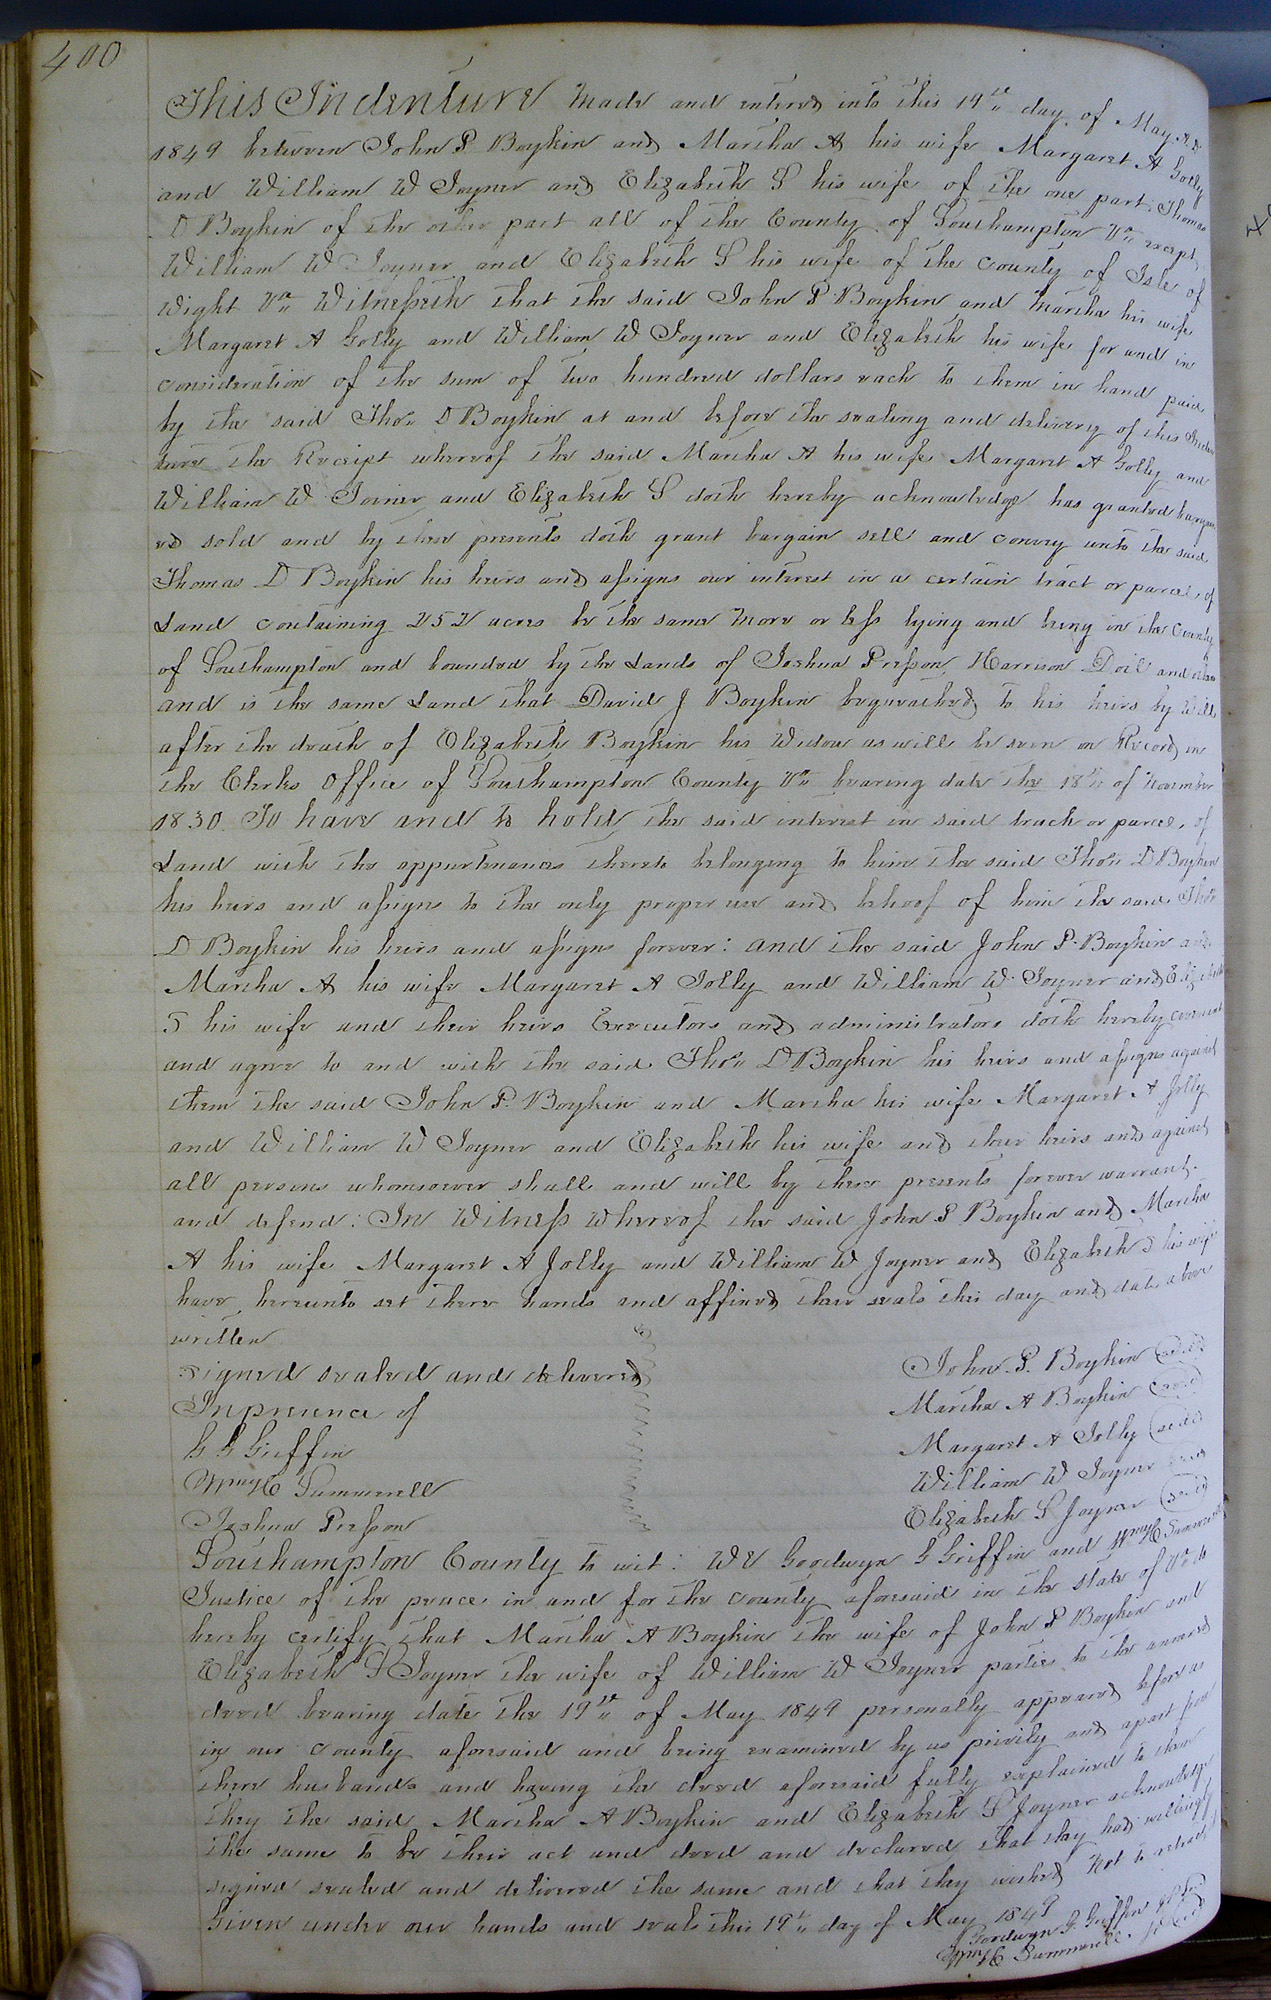 400
This Indenture Made and entered into this 19th day of May A.D.
1849 between John P. Boykin and Martha A his wife Margaret A Jolly
and William W Joyner and Elizabeth S his wife of the one part Thomas
D Boykin of the other part all of the County of Southampton Va except
William W Joyner and Elizabeth S his wife of the County of Isle of
Wight Va Witnesseth that the said John P. Boykin and Martha his wife
Margaret A Jolly and William W Joyner and Elizabeth his wife for and in
consideration of the sum of two hundred dollars each to them in hand paid
by the said Thos D Boykin at and before the sealing and delivery of this Inden
ture the Receipt whereof the said Martha A his wife Margaret A Jolly and
William W Joiner and Elizabeth S doth hereby acknowledge has granted bargain
ed sold and by these presents doth grant bargain sell and convey unto the said
Thomas D Boykin his heirs and assigns our interest in a certain tract or parcel of
Land containing 252 acres be the same more or less lying and being in the County
of Southampton and bounded by the Lands of Joshua Presson Harrison Doil and others
and is the same Land that David J Boykin bequeathed to his heirs by Will
after the death of Elizabeth Boykin his Widow as will be seen on Record in
the Clerks Office of Southampton County Va bearing date the 18th of November
1830. To have and to hold the said interest in said track or parcel of
Land with the appurtenances thereto belonging to him the said Thos D Boykin
his heirs and assigns to the only proper use and behoof of him the said Thos
D Boykin his heirs and assigns forever: and the said John P. Boykin and
Martha A his wife Margaret A Jolly and William W. Joyner and Elizabeth
S his wife and their heirs Executors and administrators doth hereby covenant
and agree to and with the said Thos D Boykin his heirs and assigns against
them the said John P. Boykin and Martha his wife Margaret A Jolly
and William W Joyner and Elizabeth his wife and their heirs and against
all persons whomsoever shall and will by these presents forever warrant
and defend: In Witness Whereof the said John P Boykin and Martha
A his wife Margaret A Jolly and William W Joyner and Elizabeth S his wife
have hereunto set there hands and affixed their seals this day and date above
written
signed sealed and delivered John P. Boykin (seal)
In presence of Martha A Boykin (seal)
G G Griffin Margaret A Jolly (seal)
Wm H Summerell William W Joyner (seal)
Joshua Presson Elizabeth S Joyner (seal)
Southampton County to wit: We Goodwyn G Griffin and Wm H Summerell
Justice of the peace in and for the county aforesaid in the state of Va do
hereby certify that Martha A Boykin the wife of John P Boykin and
Elizabeth S Joyner the wife of William W Joyner parties to the annexed
deed bearing date the 19th of May 1849 personally appeared before us
in our County aforesaid and being examined by us privily and apart from
there husbands and having the deed aforesaid fully explained to them
they the said Martha A Boykin and Elizabeth S Joyner acknowledge
the same to be their act and deed and declared that they had willingly
signed sealed and delivered the same and that they wished Not to retract
Given under our hands and seals this 19th day of May 1849
Goodwyn G. Griffin J.P. Seal
Wm H Summerell. J. P. Seal